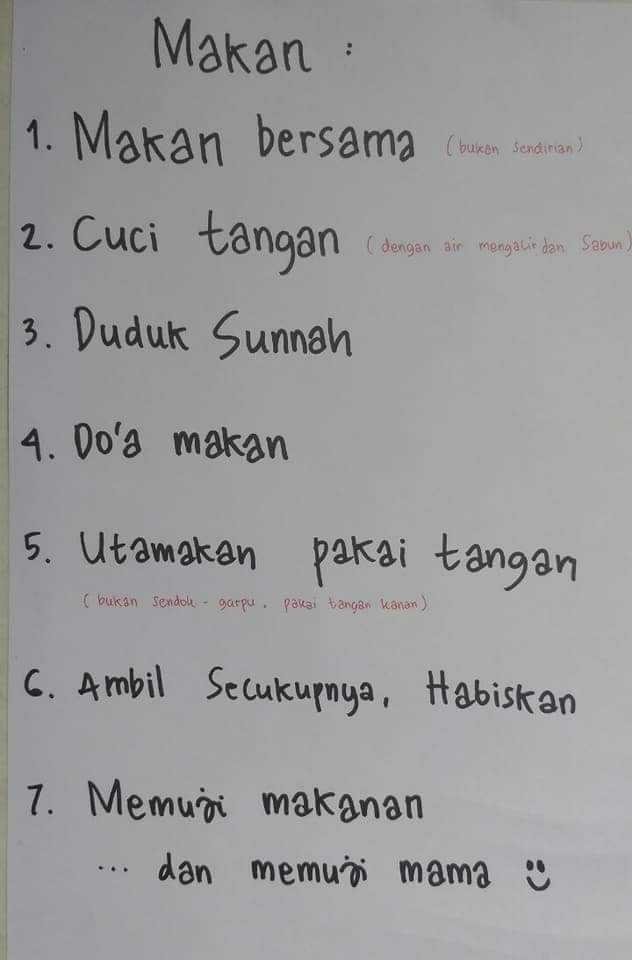 Makan :
1. Makan bersama (bukan sendirian)
2. Cuci tangan (dengan air mengalir dan Sabun)
3. Duduk Sunnah
4. Do'a makan
5. Utamakan pakai tangan
(bukan sendok - garpu, pakai tangan kanan)
6. Ambil Secukupnya, Habiskan
7. Memuji makanan
... dan memuji mama